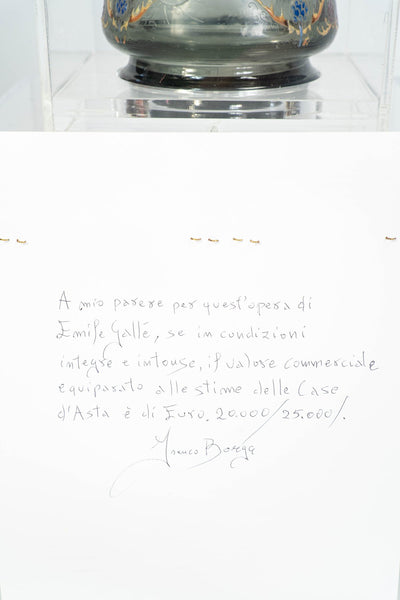 A mio parere per quest'opera di
Emile Gallé, se in condizioni
integre e intonse, il valore commerciale
equiparato alle stime delle Case
d'Asta è di Euro. 20.000/25.000/.
Franco Borga